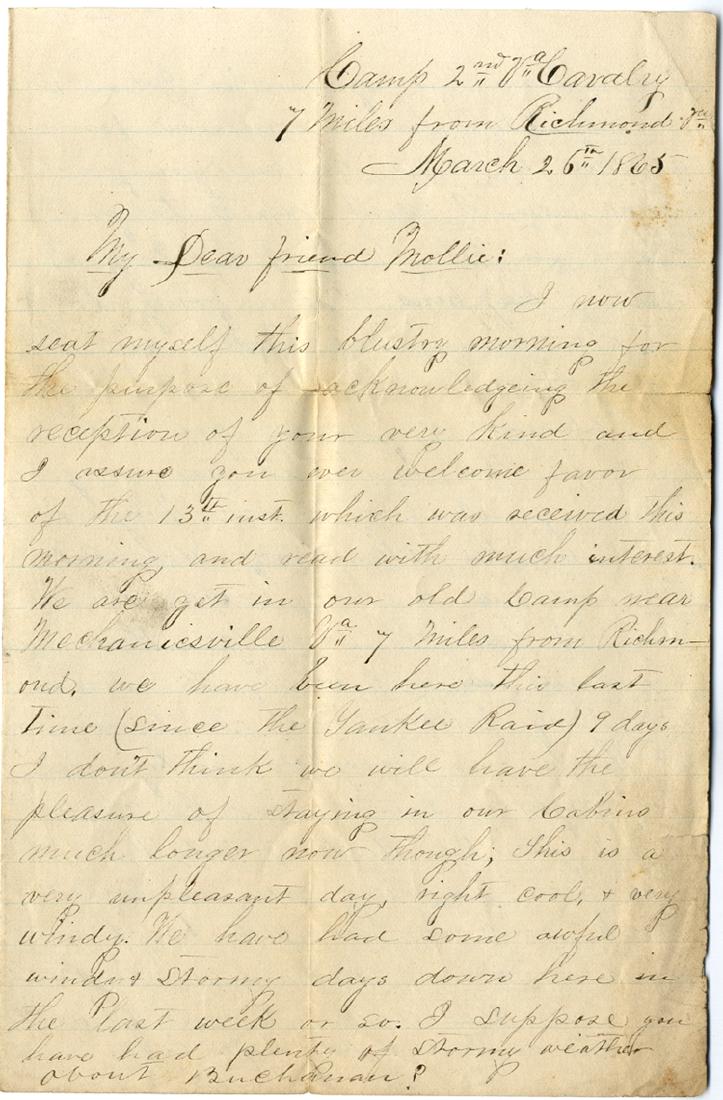 Camp 2nd Va Cavalry
7 Miles from Richmond Va
March 26th 1865
My Dear friend Mollie:
I now
seat myself this blustry morning for
the purpose of acknowledgeing the
reception of your very kind and
I assure you ever welcome favor
of the 13th inst. which was received this
morning, and read with much interest.
We are yet in our old Camp near
Mechanicsville Va 7 Miles from Richm-
ond. we have been here this last
time (since the Yankee Raid) 9 days
I don't think we will have the
pleasure of staying in our Cabins
much longer now though; this is a
very unpleasant day, right cool, & very
windy. We have had some awful
windy & stormy days down here in
the last week or so. I suppose you
have had plenty of stormy weather
about Buchanan?